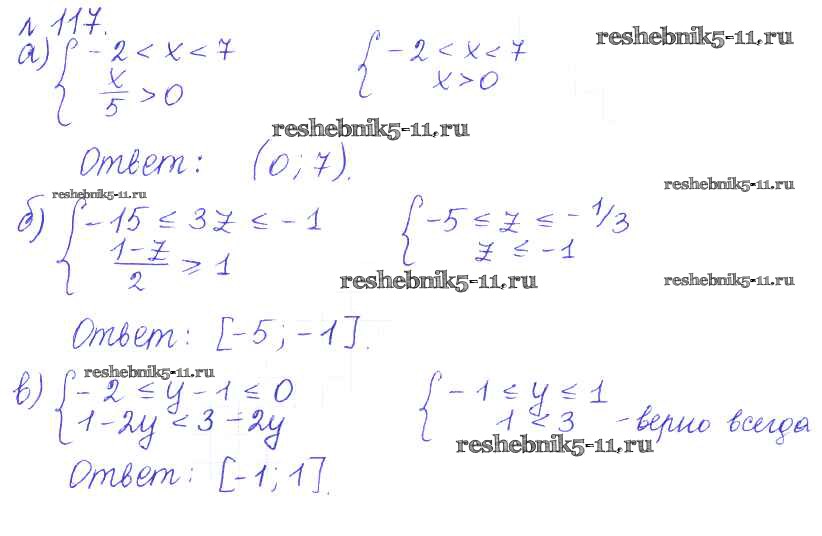 № 117.
reshebnik5-11.ru
а) { -2 < x < 7 { -2 < x < 7
x/5 > 0 x > 0
reshebnik5-11.ru
Ответ: (0; 7).
reshebnik5-11.ru
reshebnik5-11.ru
б) { -15 ≤ 3z ≤ -1 { -5 ≤ z ≤ -1/3
(1-z)/2 ≥ 1 z ≤ -1
reshebnik5-11.ru
reshebnik5-11.ru
Ответ: [-5; -1].
reshebnik5-11.ru
в) { -2 ≤ y-1 ≤ 0 { -1 ≤ y ≤ 1
1-2y < 3-2y 1 < 3 -верно всегда
reshebnik5-11.ru
Ответ: [-1; 1].